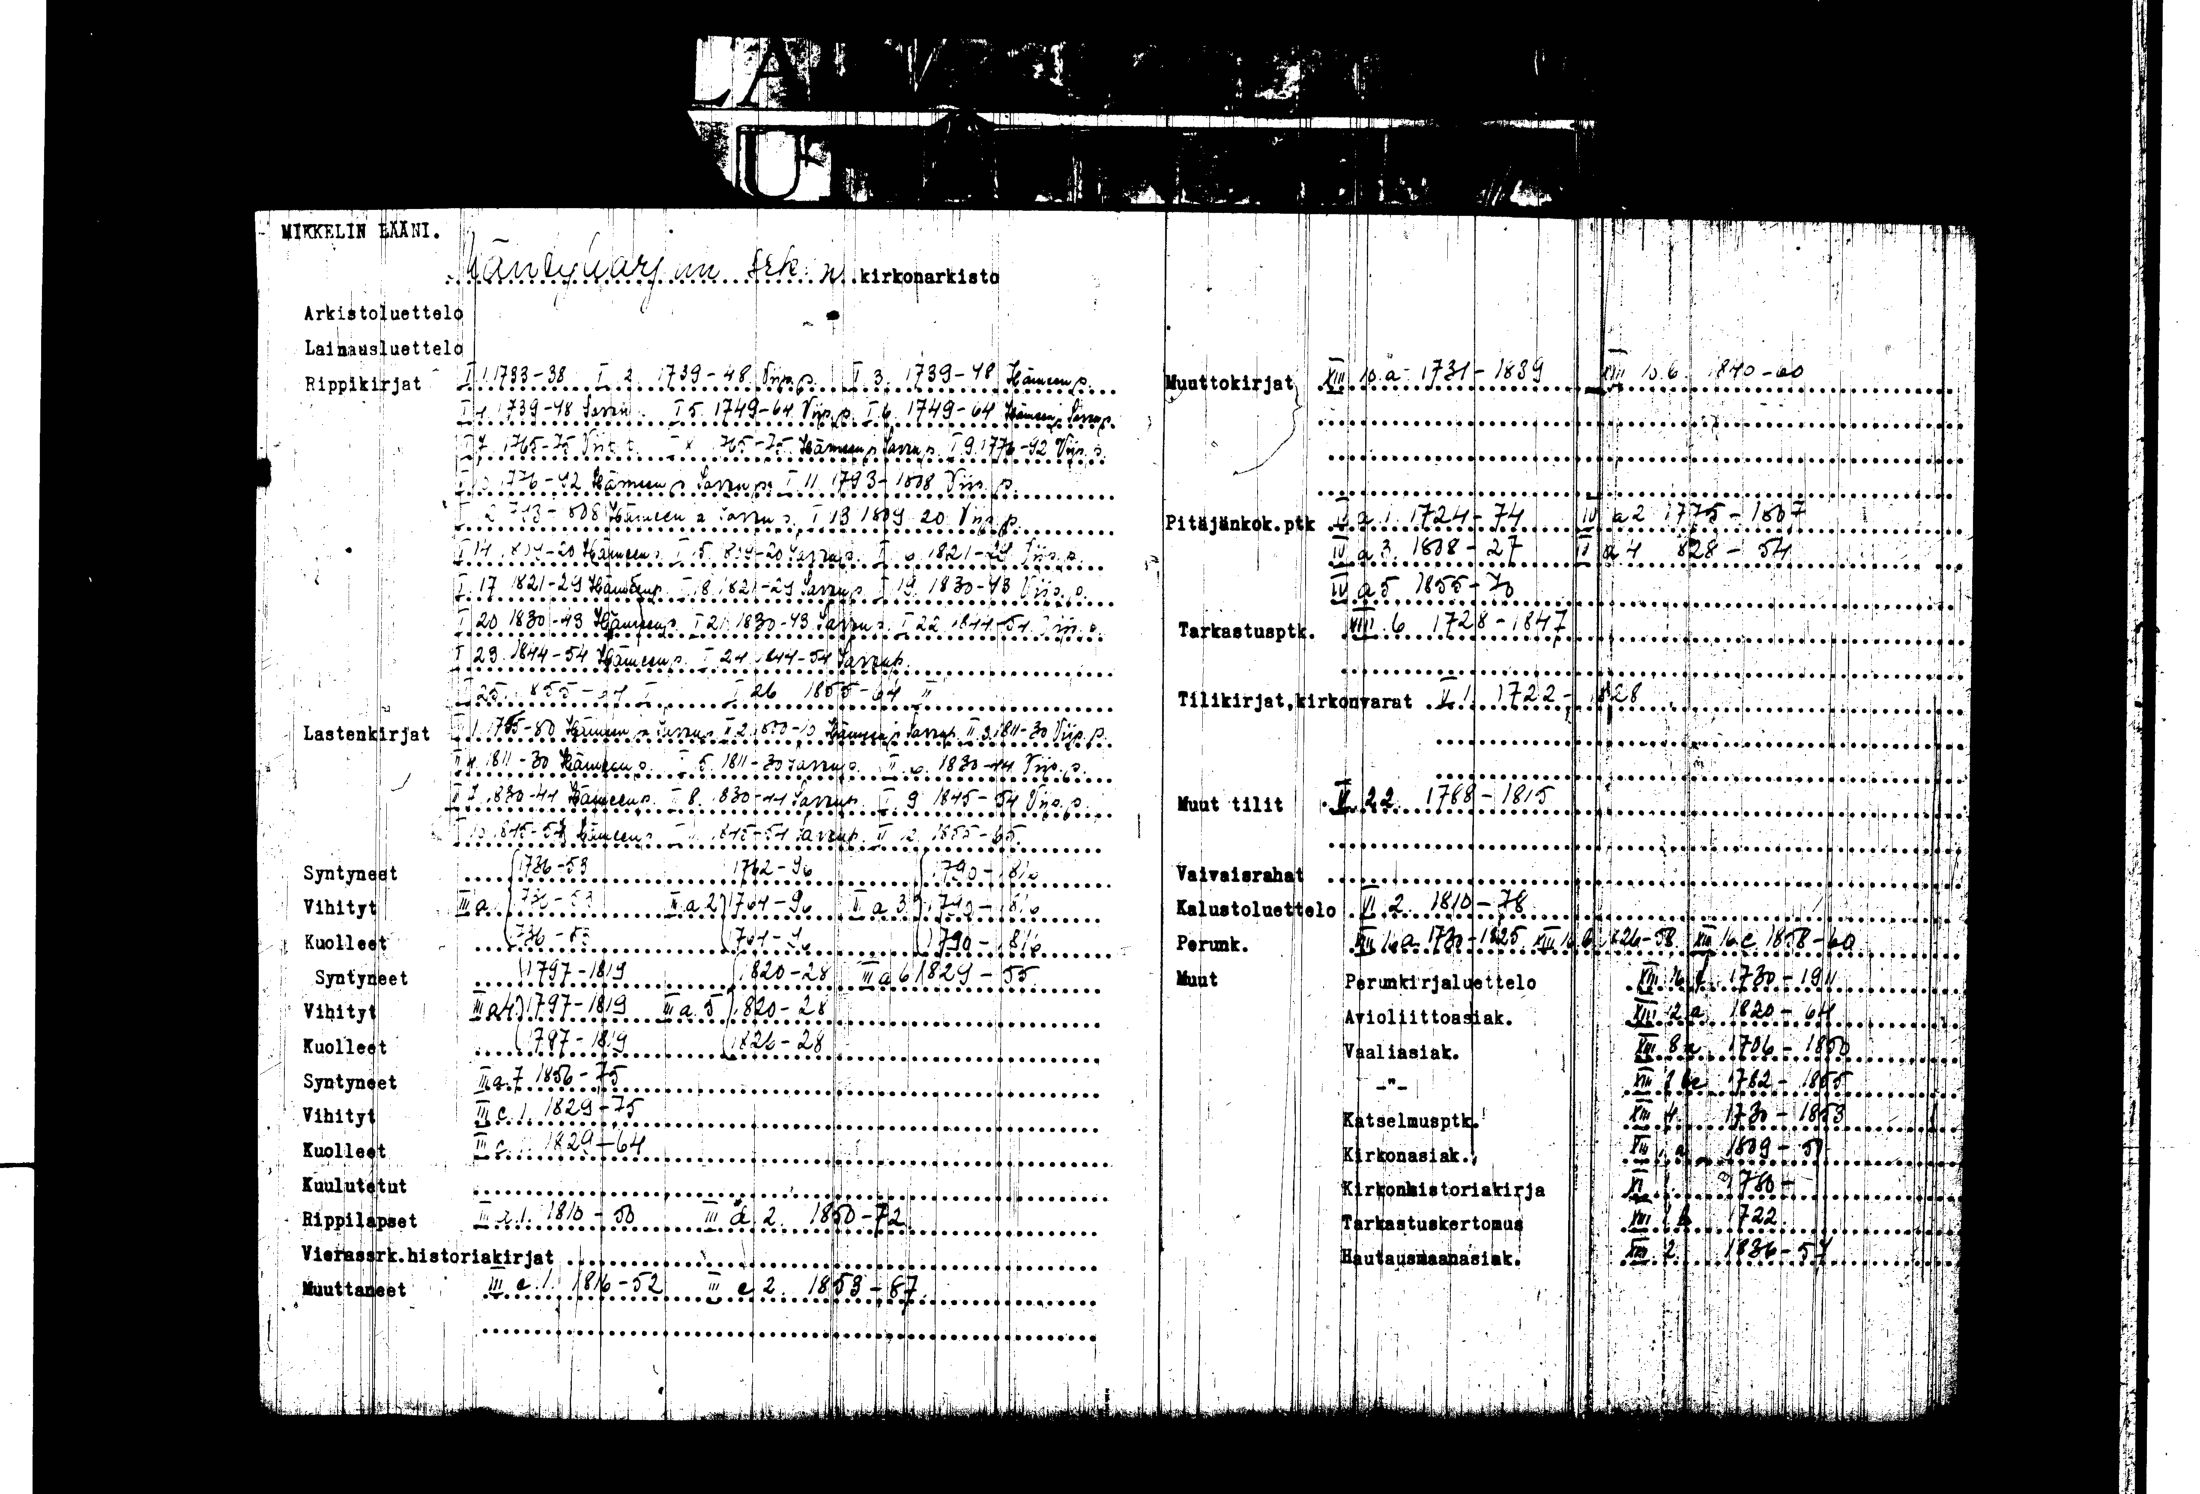 MIKKELIN LÄÄNI.
Mäntyharjun srk:n kirkonarkisto
Arkistoluettelo
Lainausluettelo
Rippikirjat I 1. 1733-38 I 2. 1739-48 Viip.p. I 3. 1739-48 Hämeen p.
I 4. 1739-48 Savon I 5. 1749-64 Viip.p. I 6. 1749-64 Hämeen p. Savon p.
I 7. 1765-75 I 8. 1765-75 Hämeen p. Savon p. I 9. 1776-92 Viip.p.
I 10. 1776-92 Hämeen p. Savon p. I 11. 1793-1808 Viip.p.
I 12. 1793-1808 Hämeen p. Savon p. I 13. 1809-20 Viip.p.
I 14. 1809-20 Hämeen p. I 15. 1809-20 Savon p. I 16. 1821-29 Viip.p.
I 17. 1821-29 Hämeen p. I 18. 1821-29 Savon p. I 19. 1830-43 Viip.p.
I 20. 1830-43 Hämeen p. I 21. 1830-43 Savon p. I 22. 1844-54 Viip.p.
I 23. 1844-54 Hämeen p. I 24. 1844-54 Savon p.
I 25. 1855-64 I I 26. 1855-64 II
Lastenkirjat II 1. Hämeen p. Savon p. II 2. 1800-10 Hämeen p. Savon p. II 3. 1811-30 Viip.p.
II 4. 1811-30 Hämeen p. II 5. 1811-30 Savon p. II 6. 1830-44 Viip.p.
II 7. 1830-44 Hämeen p. II 8. 1830-44 Savon p. II 9. 1845-54 Viip.p.
II 10. 1845-54 Hämeen p. II 11. 1845-54 Savon p. II 12. 1855-65.
Syntyneet 1736-53 1762-96 1790-1816
Vihityt III a 1 1736-53 III a 2 1764-96 III a 3 1790-1816
Kuolleet 1736-53 1764-96 1790-1816
Syntyneet 1797-1819 1820-28 III a 6 1829-55
Vihityt III a 4 1797-1819 III a 5 1820-28
Kuolleet 1797-1819 1826-28
Syntyneet III a 7 1856-75
Vihityt III c. 1. 1829-75
Kuolleet 1829-64
Kuulutetut
Rippilapset 1. 1810-50 2. 1850-72
Vierassrk.historiakirjat
Muuttaneet III e. 1. 1816-52 III e 2. 1853-87
Muuttokirjat XIII 10.a. 1731-1839 XIII 10.b. 1840-60
Pitäjänkok.ptk IV a 1. 1724-74 IV a 2 1775-1807
IV a 3. 1808-27 IV a 4 1828-54
IV a 5 1855-70
Tarkastusptk. VIII. 6 1728-1847
Tilikirjat,kirkonvarat V 1. 1722-1828
Muut tilit V. 22. 1788-1815
Vaivaisrahat
Kalustoluettelo VI 2. 1810-78
Perunk. XIII 16 a. 1730-1825 XIII 16 b. 1826-58. XIII 16 c 1858-60
Muut Perunkirjaluettelo XIII 16 1730-1911
Avioliittoasiak. XIII 12 a 1820-64
Vaaliasiak. XIII 8 a 1706-1850
-"- 1782-1855
Katselmusptk. XIII 4. 1730-1853
Kirkonasiak. 1809-50
Kirkonhistoriakirja XI 1. 1780-
Tarkastuskertomus 1722
Hautausmaanasiak. 2. 1836-57